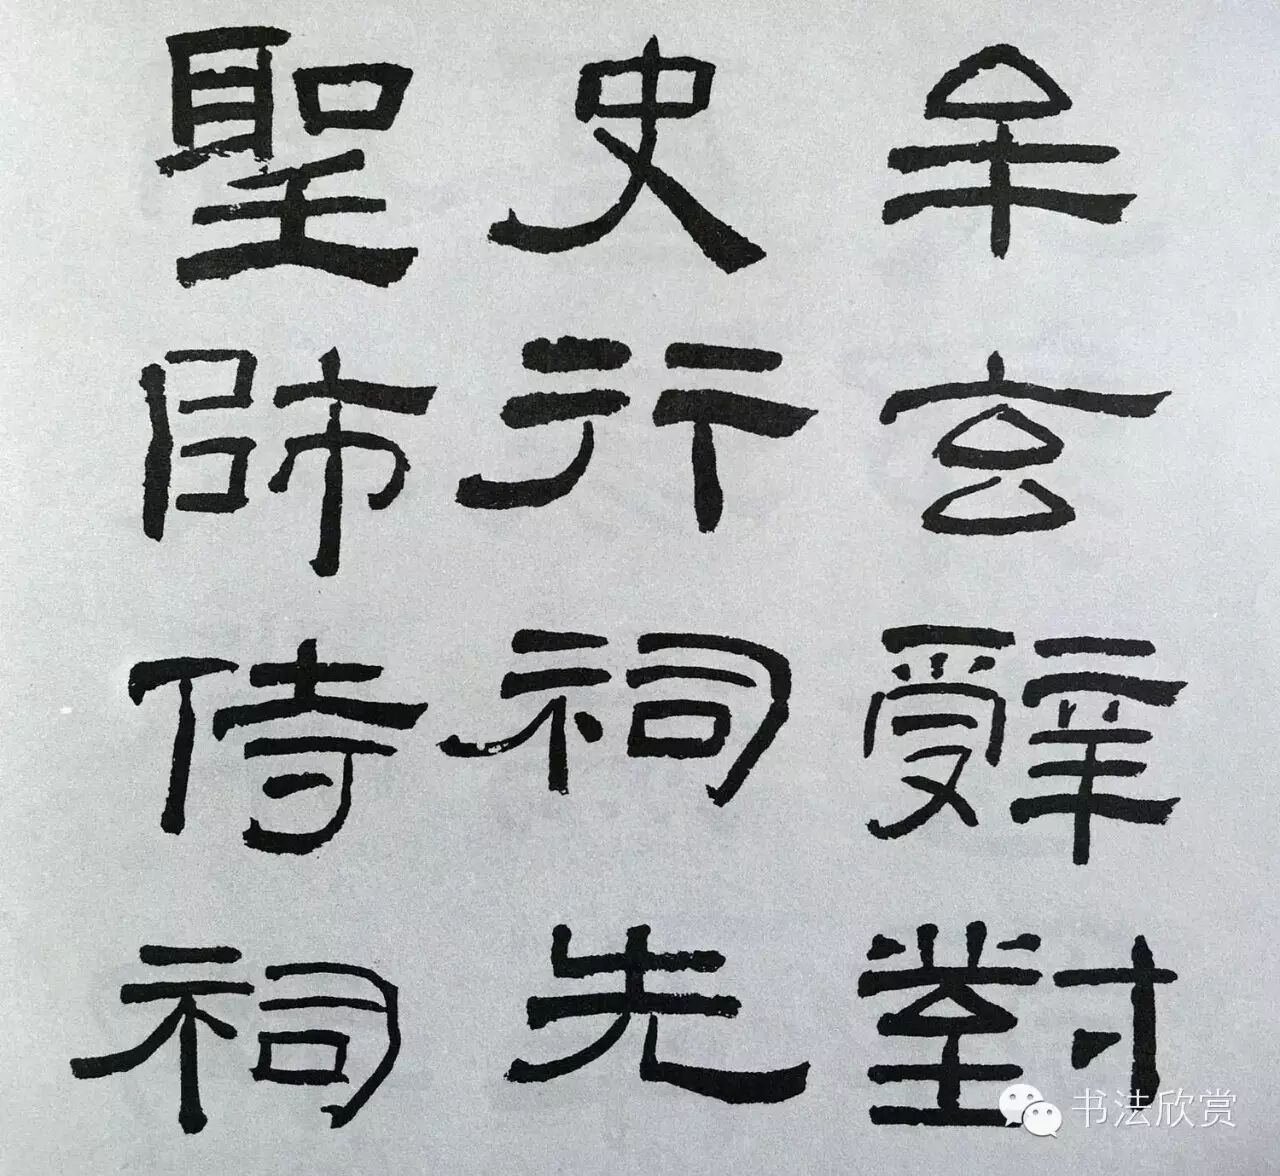 牟玄辭對
史行祠先
聖師侍祠
书法欣赏